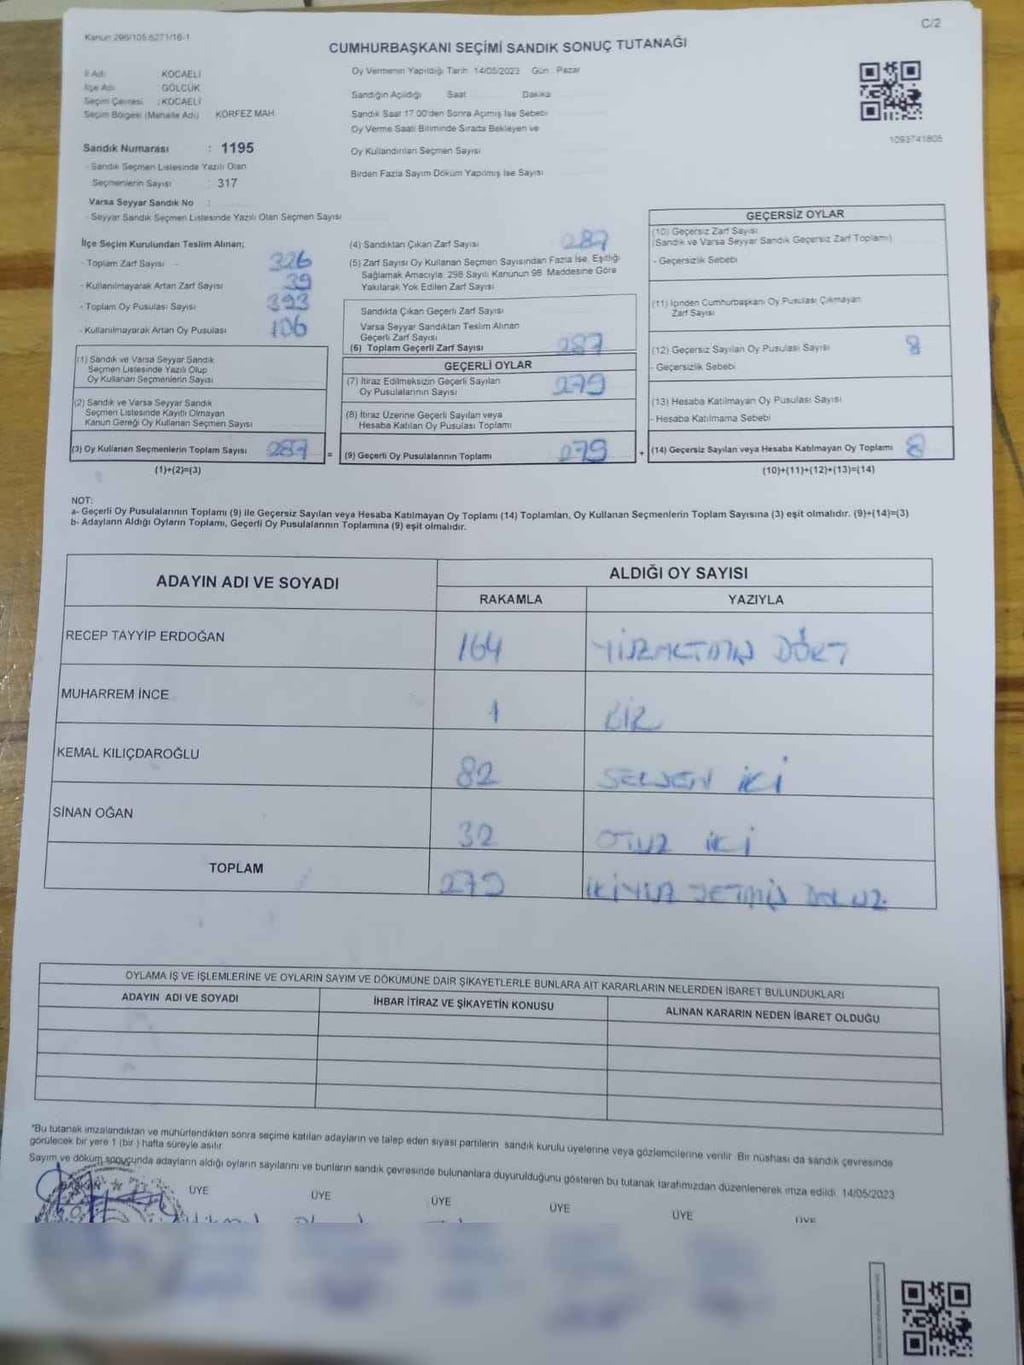 C/2
Kanun 298/105.6271/16-1
CUMHURBAŞKANI SEÇİMİ SANDIK SONUÇ TUTANAĞI
İl Adı KOCAELİ
İlçe Adı GÖLCÜK
Seçim Çevresi : KOCAELİ
Seçim Bölgesi (Mahalle Adı) KÖRFEZ MAH.
Sandık Numarası : 1195
- Sandık Seçmen Listesinde Yazılı Olan
Seçmenlerin Sayısı : 317
Varsa Seyyar Sandık No :
- Seyyar Sandık Seçmen Listesinde Yazılı Olan Seçmen Sayısı
Oy Vermenin Yapıldığı Tarih 14/05/2023 Gün : Pazar
Sandığın Açıldığı Saat Dakika
Sandık Saat 17.00'den Sonra Açımış İse Sebebi
Oy Verme Saati Bitiminde Sırada Bekleyen ve
Oy Kullandırılan Seçmen Sayısı
Birden Fazla Sayım Döküm Yapılmış İse Sayısı
1093741805
İlçe Seçim Kurulundan Teslim Alınan;
- Toplam Zarf Sayısı 326
- Kullanılmayarak Artan Zarf Sayısı 39
- Toplam Oy Pusulası Sayısı 393
- Kullanılmayarak Artan Oy Pusulası 106
(1) Sandık ve Varsa Seyyar Sandık
Seçmen Listesinde Yazılı Olup
Oy Kullanan Seçmenlerin Sayısı
(2) Sandık ve Varsa Seyyar Sandık
Seçmen Listesinde Kayıtlı Olmayan
Kanun Gereği Oy Kullanan Seçmen Sayısı
(3) Oy Kullanan Seçmenlerin Toplam Sayısı 287 =
(1)+(2)=(3)
(4) Sandıktan Çıkan Zarf Sayısı 287
(5) Zarf Sayısı Oy Kullanan Seçmen Sayısından Fazla İse, Eşitliği
Sağlamak Amacıyla 298 Sayılı Kanunun 98. Maddesine Göre
Yakılarak Yok Edilen Zarf Sayısı
Sandıkta Çıkan Geçerli Zarf Sayısı
Varsa Seyyar Sandıktan Teslim Alınan
Geçerli Zarf Sayısı
(6) Toplam Geçerli Zarf Sayısı 287
GEÇERLİ OYLAR
(7) İtiraz Edilmeksizin Geçerli Sayılan
Oy Pusulalarının Sayısı 279
(8) İtiraz Üzerine Geçerli Sayılan veya
Hesaba Katılan Oy Pusulası Toplamı
(9) Geçerli Oy Pusulalarının Toplamı 279 +
GEÇERSİZ OYLAR
(10) Geçersiz Zarf Sayısı
(Sandık ve Varsa Seyyar Sandık Geçersiz Zarf Toplamı)
- Geçersizlik Sebebi
(11) İçinden Cumhurbaşkanı Oy Pusulası Çıkmayan
Zarf Sayısı
(12) Geçersiz Sayılan Oy Pusulası Sayısı 8
- Geçersizlik Sebebi
(13) Hesaba Katılmayan Oy Pusulası Sayısı
- Hesaba Katılmama Sebebi
(14) Geçersiz Sayılan veya Hesaba Katılmayan Oy Toplamı 8
(10)+(11)+(12)+(13)=(14)
NOT:
a- Geçerli Oy Pusulalarının Toplamı (9) ile Geçersiz Sayılan veya Hesaba Katılmayan Oy Toplamı (14) Toplamları, Oy Kullanan Seçmenlerin Toplam Sayısına (3) eşit olmalıdır. (9)+(14)=(3)
b- Adayların Aldığı Oyların Toplamı, Geçerli Oy Pusulalarının Toplamına (9) eşit olmalıdır.
ADAYIN ADI VE SOYADI ALDIĞI OY SAYISI
RAKAMLA YAZIYLA
RECEP TAYYİP ERDOĞAN 164 YÜZALTMIŞ DÖRT
MUHARREM İNCE 1 BİR
KEMAL KILIÇDAROĞLU 82 SEKSEN İKİ
SİNAN OĞAN 32 OTUZ İKİ
TOPLAM 279 İKİYÜZ YETMİŞ DOKUZ
OYLAMA İŞ VE İŞLEMLERİNE VE OYLARIN SAYIM VE DÖKÜMÜNE DAİR ŞİKAYETLERLE BUNLARA AİT KARARLARIN NELERDEN İBARET BULUNDUKLARI
ADAYIN ADI VE SOYADI İHBAR İTİRAZ VE ŞİKAYETİN KONUSU ALINAN KARARIN NEDEN İBARET OLDUĞU
*Bu tutanak imzalandıktan ve mühürlendikten sonra seçime katılan adayların ve talep eden siyasi partilerin sandık kurulu üyelerine veya gözlemcilerine verilir. Bir nüshası da sandık çevresinde
görülecek bir yere 1 (bir) hafta süreyle asılır.
Sayım ve döküm sonuçunda adayların aldığı oyların sayılarını ve bunların sandık çevresinde bulunanlara duyurulduğunu gösteren bu tutanak tarafımızdan düzenlenerek imza edildi. 14/05/2023
ÜYE ÜYE ÜYE ÜYE ÜYE ÜYE